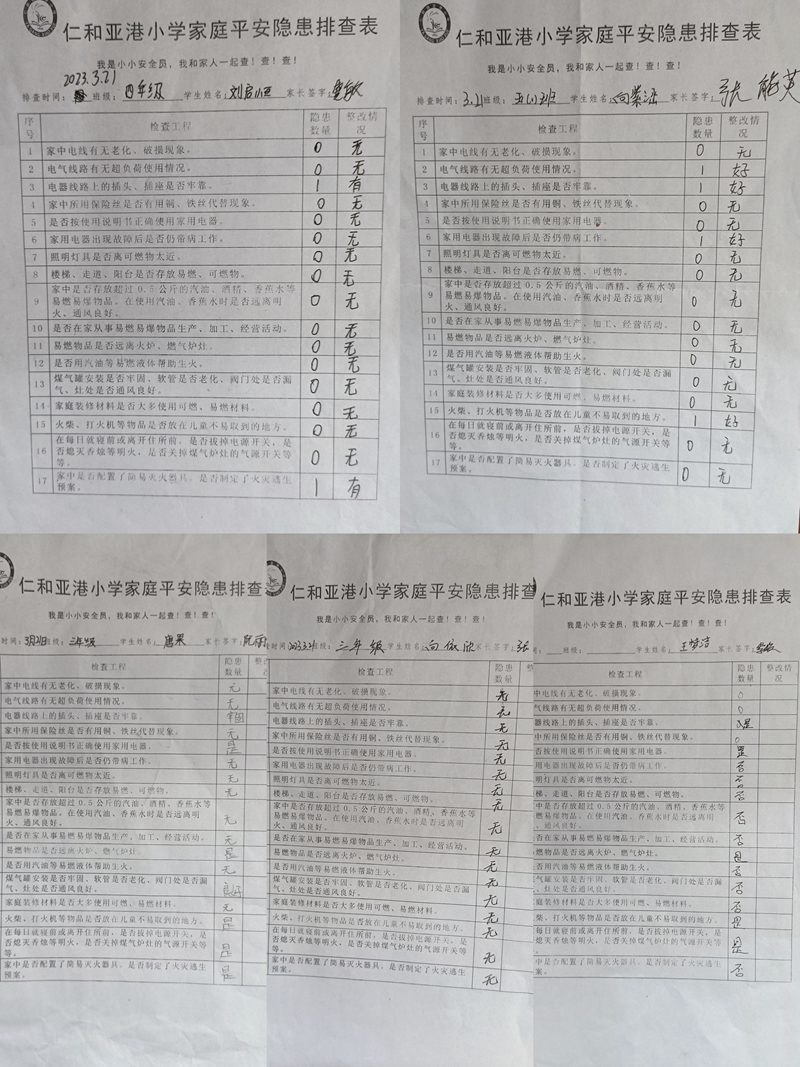 仁和亚港小学家庭平安隐患排查表
我是小小安全员，我和家人一起查！查！查！
2023.3.21
排查时间： 班级：四年级 学生姓名：刘 家长签字：
序号 检查工程 隐患数量 整改情况
1 家中电线有无老化、破损现象。 0 无
2 电气线路有无超负荷使用情况。 0 无
3 电器线路上的插头、插座是否牢靠。 1 有
4 家中所用保险丝是否有用铜、铁丝代替现象。 0 无
5 是否按使用说明书正确使用家用电器。 0 无
6 家用电器出现故障后是否仍带病工作。 0 无
7 照明灯具是否离可燃物太近。 0 无
8 楼梯、走道、阳台是否存放易燃、可燃物。 0 无
9 家中是否存放超过0.5公斤的汽油、酒精、香蕉水等
易燃易爆物品。在使用汽油、香蕉水时是否远离明
火、通风良好。 0 无
10 是否在家从事易燃易爆物品生产、加工、经营活动。 0 无
11 易燃物品是否远离火炉、燃气炉灶。 0 无
12 是否用汽油等易燃液体帮助生火。 0 无
13 煤气罐安装是否牢固、软管是否老化、阀门处是否漏
气、灶处是否通风良好。 0 无
14 家庭装修材料是否大多使用可燃、易燃材料。 0 无
15 火柴、打火机等物品是否放在儿童不易取到的地方。 0 无
16 在每日就寝前或离开住所前，是否拔掉电源开关，是
否熄灭香烛等明火，是否关掉煤气炉灶的气源开关等
等。 0 无
17 家中是否配置了简易灭火器具，是否制定了火灾逃生
预案。 1 有
仁和亚港小学家庭平安隐患排查表
我是小小安全员，我和家人一起查！查！查！
排查时间：3.21 班级：五(1)班 学生姓名：向紫涵 家长签字：张能英
序号 检查工程 隐患数量 整改情况
1 家中电线有无老化、破损现象。 0 无
2 电气线路有无超负荷使用情况。 1 好
3 电器线路上的插头、插座是否牢靠。 1 好
4 家中所用保险丝是否有用铜、铁丝代替现象。 0 无
5 是否按使用说明书正确使用家用电器。 0 无
6 家用电器出现故障后是否仍带病工作。 1 好
7 照明灯具是否离可燃物太近。 0 无
8 楼梯、走道、阳台是否存放易燃、可燃物。 0 无
9 家中是否存放超过0.5公斤的汽油、酒精、香蕉水等
易燃易爆物品。在使用汽油、香蕉水时是否远离明
火、通风良好。 0 无
10 是否在家从事易燃易爆物品生产、加工、经营活动。 0 无
11 易燃物品是否远离火炉、燃气炉灶。 0 无
12 是否用汽油等易燃液体帮助生火。 0 无
13 煤气罐安装是否牢固、软管是否老化、阀门处是否漏
气、灶处是否通风良好。 0 无
14 家庭装修材料是否大多使用可燃、易燃材料。 0 无
15 火柴、打火机等物品是否放在儿童不易取到的地方。 1 好
16 在每日就寝前或离开住所前，是否拔掉电源开关，是
否熄灭香烛等明火，是否关掉煤气炉灶的气源开关等
等。 0 无
17 家中是否配置了简易灭火器具，是否制定了火灾逃生
预案。 0 无
仁和亚港小学家庭平安隐患排查表
我是小小安全员，我和家人一起查！查！查！
时间：3月21日 班级：三年级 学生姓名：唐果 家长签字：
检查工程 隐患数量 整改
家中电线有无老化、破损现象。 无
电气线路有无超负荷使用情况。 无
电器线路上的插头、插座是否牢靠。 牢固
家中所用保险丝是否有用铜、铁丝代替现象。 无
是否按使用说明书正确使用家用电器。 是
家用电器出现故障后是否仍带病工作。 无
照明灯具是否离可燃物太近。 无
楼梯、走道、阳台是否存放易燃、可燃物。 无
家中是否存放超过0.5公斤的汽油、酒精、香蕉水等
易燃易爆物品。在使用汽油、香蕉水时是否远离明
火、通风良好。 无
是否在家从事易燃易爆物品生产、加工、经营活动。 无
易燃物品是否远离火炉、燃气炉灶。 是
是否用汽油等易燃液体帮助生火。 无
煤气罐安装是否牢固、软管是否老化、阀门处是否漏
气、灶处是否通风良好。 良好
家庭装修材料是否大多使用可燃、易燃材料。 无
火柴、打火机等物品是否放在儿童不易取到的地方。 是
在每日就寝前或离开住所前，是否拔掉电源开关，是
否熄灭香烛等明火，是否关掉煤气炉灶的气源开关等
等。 是
家中是否配置了简易灭火器具，是否制定了火灾逃生
预案。 是
仁和亚港小学家庭平安隐患排查
我是小小安全员，我和家人一起查！查！查！
时间：2023.3.21 三年级 学生姓名：向依欣 家长签字：张
检查工程 隐患数量
家中电线有无老化、破损现象。 无
电气线路有无超负荷使用情况。 无
电器线路上的插头、插座是否牢靠。 无
家中所用保险丝是否有用铜、铁丝代替现象。 无
是否按使用说明书正确使用家用电器。 无
家用电器出现故障后是否仍带病工作。 无
照明灯具是否离可燃物太近。 无
楼梯、走道、阳台是否存放易燃、可燃物。 无
家中是否存放超过0.5公斤的汽油、酒精、香蕉水等
易燃易爆物品。在使用汽油、香蕉水时是否远离明
火、通风良好。 无
是否在家从事易燃易爆物品生产、加工、经营活动。 无
易燃物品是否远离火炉、燃气炉灶。 无
是否用汽油等易燃液体帮助生火。 无
煤气罐安装是否牢固、软管是否老化、阀门处是否漏
气、灶处是否通风良好。 无
家庭装修材料是否大多使用可燃、易燃材料。 无
火柴、打火机等物品是否放在儿童不易取到的地方。 无
在每日就寝前或离开住所前，是否拔掉电源开关，是
否熄灭香烛等明火，是否关掉煤气炉灶的气源开关等
等。 无
家中是否配置了简易灭火器具，是否制定了火灾逃生
预案。 无
和亚港小学家庭平安隐患排查表
我是小小安全员，我和家人一起查！查！查！
班级： 学生姓名： 家长签字：
检查工程 隐患数量 整改情况
中电线有无老化、破损现象。 0
气线路有无超负荷使用情况。 0
器线路上的插头、插座是否牢靠。 是
中所用保险丝是否有用铜、铁丝代替现象。 0
否按使用说明书正确使用家用电器。 是
用电器出现故障后是否仍带病工作。 否
明灯具是否离可燃物太近。 否
梯、走道、阳台是否存放易燃、可燃物。 否
中是否存放超过0.5公斤的汽油、酒精、香蕉水等
燃易爆物品。在使用汽油、香蕉水时是否远离明
、通风良好。 否
否在家从事易燃易爆物品生产、加工、经营活动。 否
燃物品是否远离火炉、燃气炉灶。 是
否用汽油等易燃液体帮助生火。 否
气罐安装是否牢固、软管是否老化、阀门处是否漏
、灶处是否通风良好。 否
庭装修材料是否大多使用可燃、易燃材料。 否
柴、打火机等物品是否放在儿童不易取到的地方。 是
每日就寝前或离开住所前，是否拔掉电源开关，是
熄灭香烛等明火，是否关掉煤气炉灶的气源开关等
。 是
中是否配置了简易灭火器具，是否制定了火灾逃生
案。 否